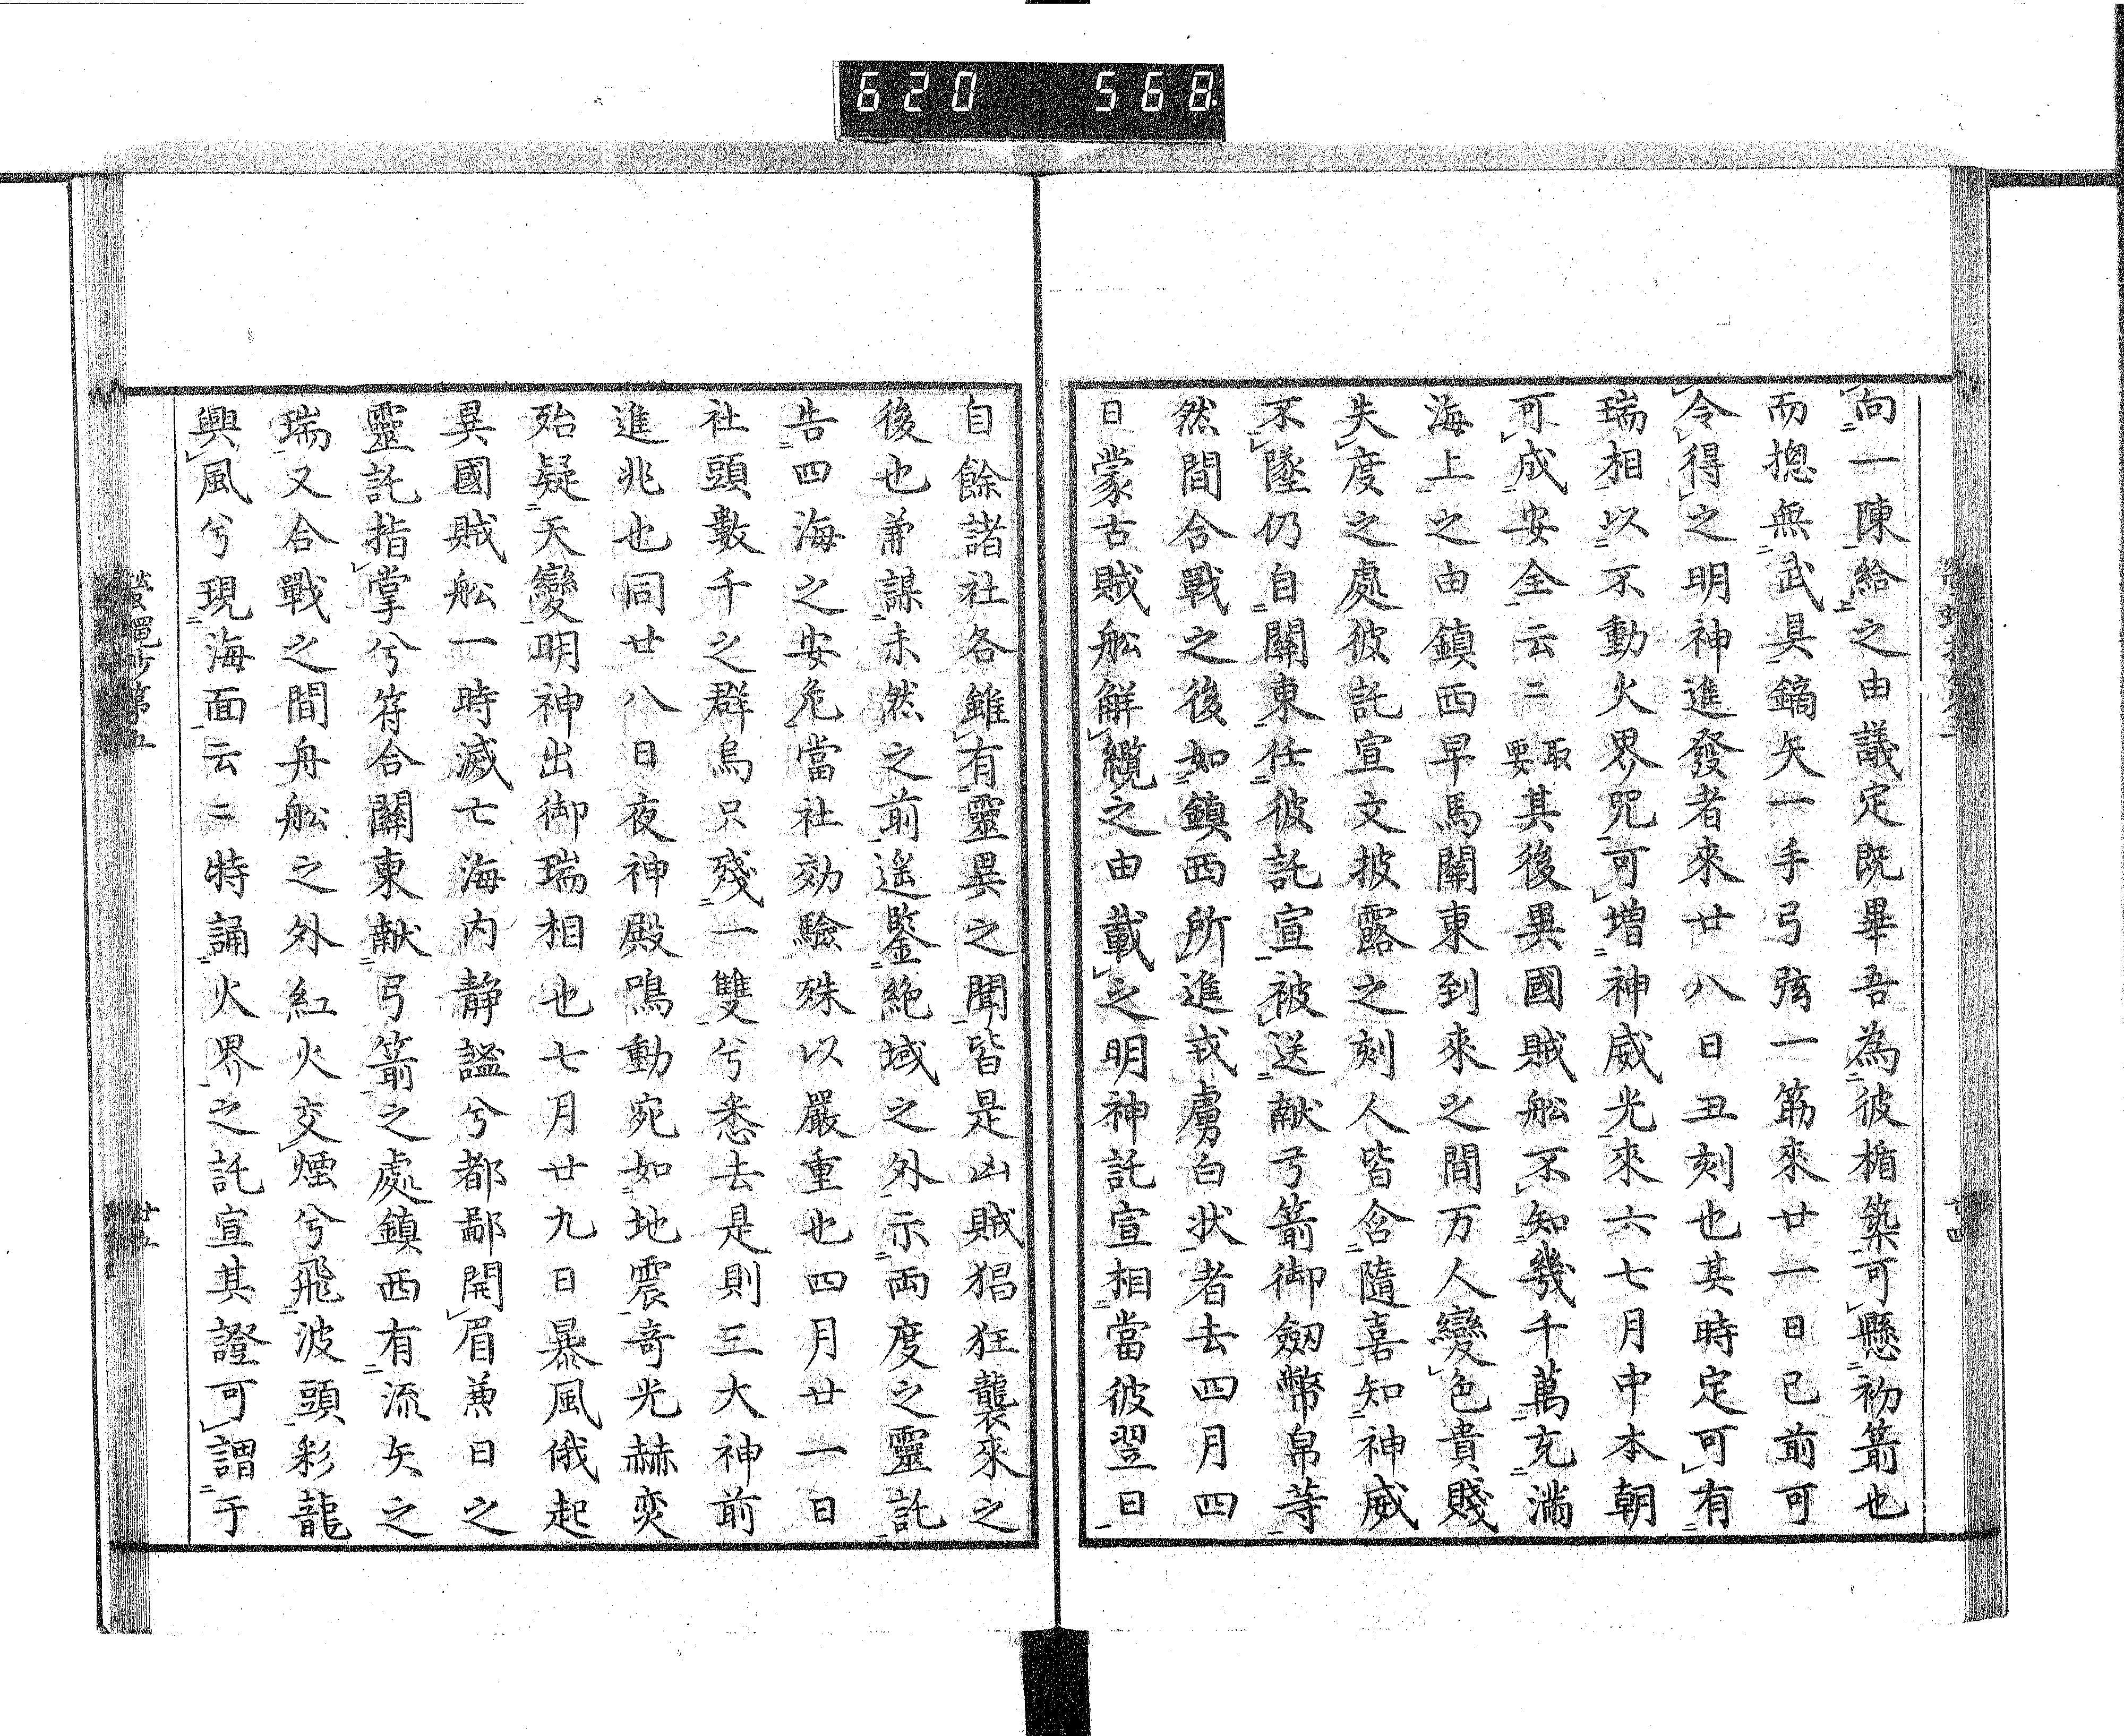 620 568
向一陳給之由議定既畢吾為彼楯築可懸初箭也
而摠無武具鏑矢一手弓弦一筋來廿一日已前可
令得之明神進發者來廿八日丑刻也其時定可有
瑞相以不動火界咒可增神威光來六七月中本朝
可成安全云二取要其後異國賊舩不知幾千萬充滿
海上之由鎮西早馬關東到來之間万人變色貴賤
失度之處彼託宣文披露之刻人皆含隨喜知神威
不墜仍自關東任彼託宣被送献弓箭御劔幣帛等
然間合戰之後如鎮西所進戎虜白状者去四月四
日蒙古賊舩解纜之由載之明神託宣相當彼翌日
自餘諸社各雖有靈異之聞皆是凶賊猖狂襲來之
後也兼謀未然之前遥鑒絶域之外示両度之靈託
告四海之安危當社効驗殊以嚴重也四月廿一日
社頭數千之群烏只殘一雙兮悉去是則三大神前
進兆也同廿八日夜神殿鳴動宛如地震奇光赫奕
殆疑天變明神出御瑞相也七月廿九日暴風俄起
異國賊舩一時滅亡海内静謐兮都鄙開眉兼日之
靈託指掌兮符合關東献弓箭之處鎮西有流矢之
瑞又合戰之間舟舩之外紅火交煙兮飛波頭彩龍
興風兮現海面云二特誦火界之託宣其證可謂于
第五
廿五
廿四